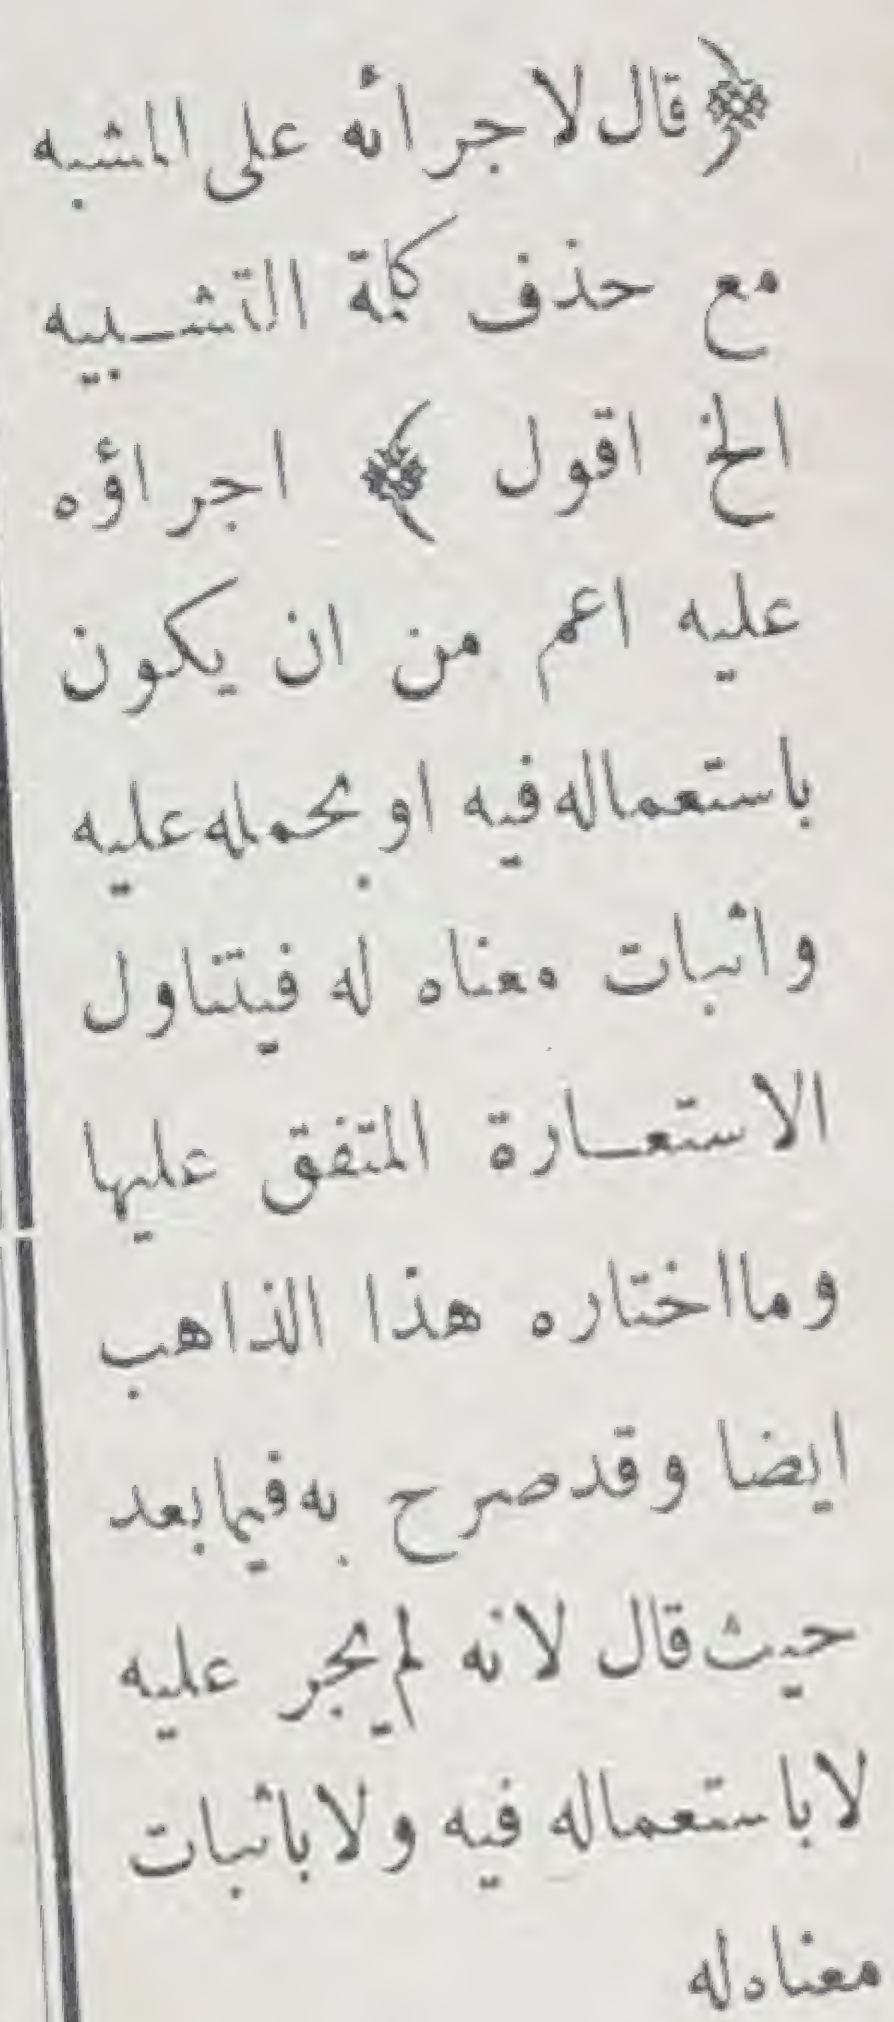 ﴿قال لاجرائه على المشبه
مع حذف كلمة التشبيه
الخ اقول ﴾ اجراؤه
عليه اعم من ان يكون
باستعماله فيه او بحمله عليه
واثبات معناه له فيتناول
الاستعارة المتفق عليها
وما اختاره هذا الذاهب
ايضا وقد صرح به فيما بعد
حيث قال لانه لم يجر عليه
لا باستعماله فيه ولا باثبات
معناه له